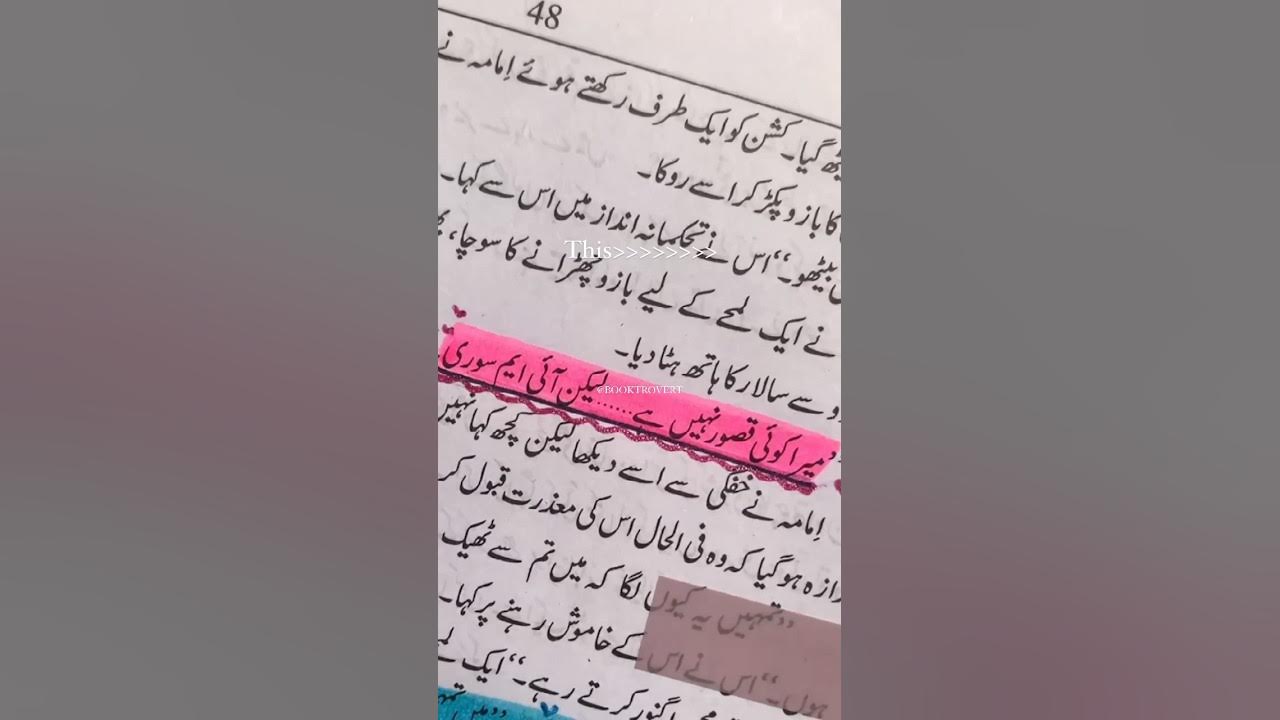 48
گیا۔ کشن کو ایک طرف رکھتے ہوئے اِمامہ نے
کا بازو پکڑ کر اسے روکا۔
بیٹھو۔“ اس نے تحکمانہ انداز میں اس سے کہا۔
This>>>>>>>>
نے ایک لمحے کے لیے بازو چھڑانے کا سوچا،
سے سالار کا ہاتھ ہٹا دیا۔
@BOOKTROVERT
”میرا کوئی قصور نہیں ہے......لیکن آئی ایم سوری
اِمامہ نے خفگی سے اسے دیکھا لیکن کچھ کہا نہیں
ہو گیا کہ وہ فی الحال اس کی معذرت قبول کر
”تمہیں یہ کیوں لگا کہ میں تم سے ٹھیک
ہوں۔“ اس نے اس کے خاموش رہنے پر کہا۔
اگنور کرتے رہے۔“ ایک